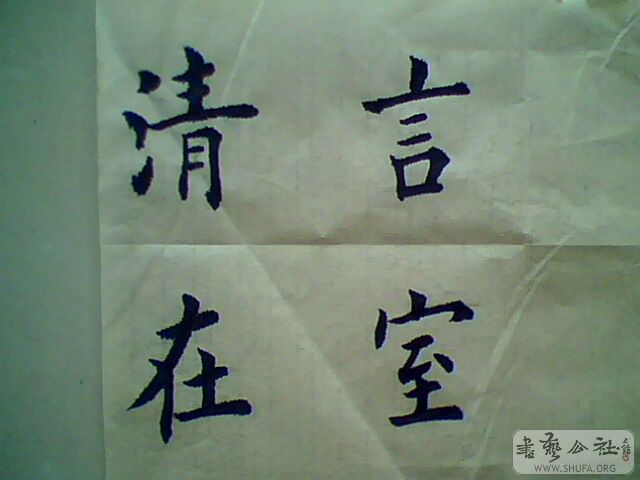 清言
在室
書藝公社
WWW.SHUFA.ORG